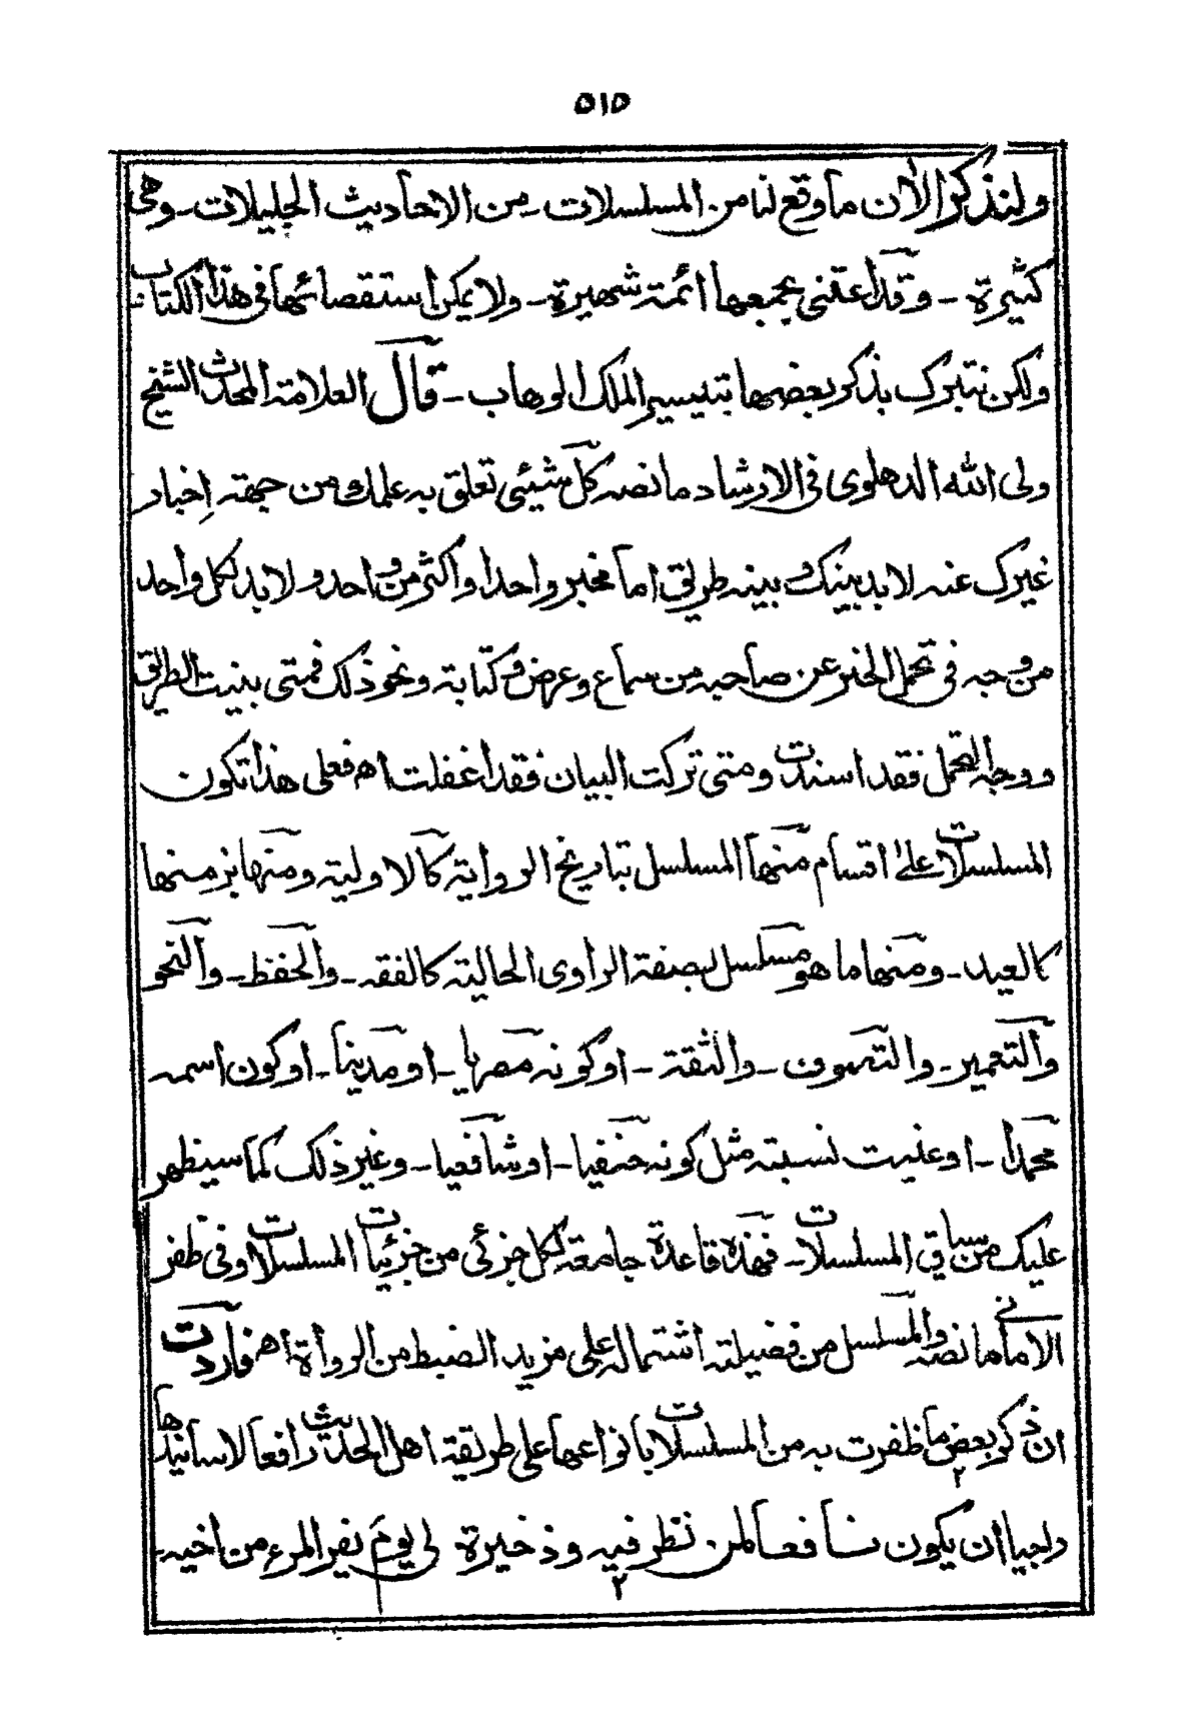 ٥١٥
ولنذكر الأن ما وقع لنا من المسلسلات - من الاحاديث الجليلات - وهى
كثيرة - وقد اعتنى بجمعها ائمة شهيرة - ولا يمكن استقصائها فى هذا الكتاب
ولكن نتبرك بذكر بعضها بتيسير الملك الوهاب - قال العلامة المحدث الشيخ
ولى الله الدهلوى فى الارشاد ما نصه كل شيئى تعلق به علمك من جهة إخبار
غيرك عنه لا بد بينك و بينه طريق اما مخبر واحد او اكثر من واحد و لا بد لكل واحد
من وجه فى تحمل الخبر عن صاحبه من سماع وعرض و كتابة ونحو ذلك فمتى بينت الطريق
ووجه التحمل فقد اسندت ومتى تركت البيان فقد اغفلت اه فعلى هذا تكون
المسلسلات على اقسام منها المسلسل بتاريخ الرواية كالاولية ومنها بزمنها
كالعيد - ومنها ما هو مسلسل بصفة الراوى الحالية كالفقه - والحفظ - والنحو
والتعمير - والتصوف - والثقة - او كونه مصريا - او مدينا - او كون اسمه
محمدا - او عنيت نسبته مثل كونه حنفيا - او شافعيا - وغير ذلك كما سيظهر
عليك من سياق المسلسلات - فهذه قاعدة جامعة لكل جزئى من جزئيات المسلسلات وفى ظفر
الامانى ما نصه والمسلسل من فضيلته اشتماله على مزيد الضبط من الرواة اه فاردت
ان ذكر بعض ما ظفرت به من المسلسلات بانواعها على طريقة اهل الحديث رافعا لاسانيدها
٢
راجيا ان يكون نافعا لمن نظر فيه وذخيرة لى يوم يفر المرء من اخيه -
٢